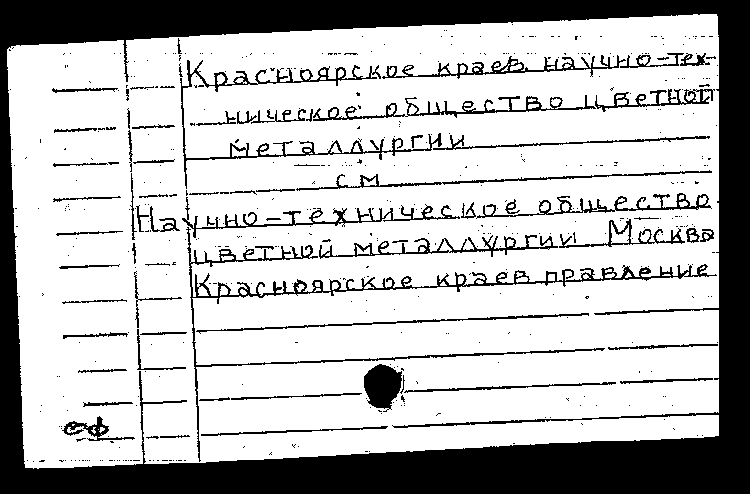 Красноярское краев. научно-тех-
ническое общество цветной
металлургии
см
Научно-техническое общество
цветной металлургии Москва
Красноярское краев правление